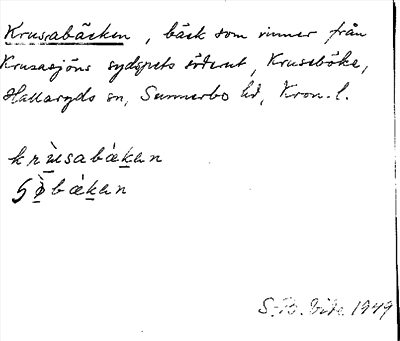 Krusabäcken, bäck som rinner från
Krusasjöns sydspets söderut, Kruseböke,
Hallaryds sn, Sunnerbo hd, Kron. l.
krùsabäkan
5öbäkan
S. B. Vide 1949